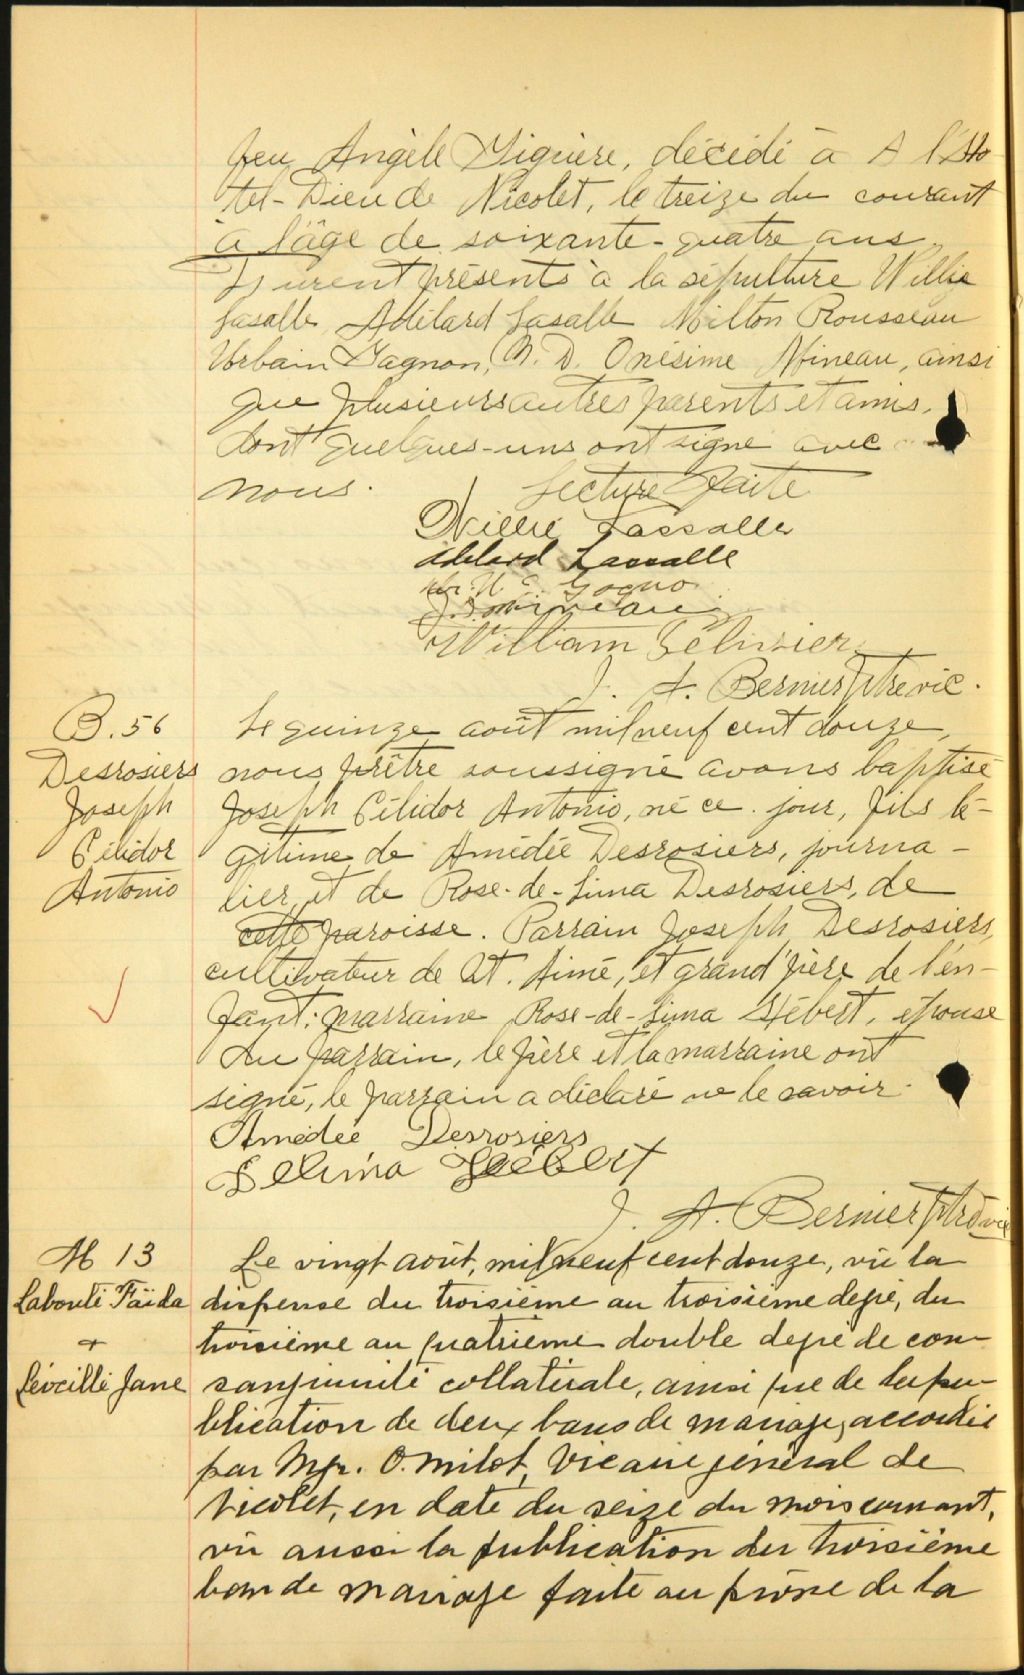 feu Angèle Giguère, décédé à A l'Ho-
tel-Dieu de Nicolet, le treize du courant
à l'âge de soixante-quatre ans.
Furent présents à la sépulture Willie
Lasalle Adélard Lasalle Milton Rousseau
Urbain Gagnon, M. D. Onésime Mineau, ainsi
que plusieurs autres parents et amis,
dont quelques-uns ont signé avec
nous. Lecture faite
Willie Lassalle
Adélard Lassalle
William Pélissier
J. A. Bernier Ptre vic.
B. 56
Desrosiers
Joseph
Célidor
Antonio
Le quinze août mil neuf cent douze,
nous prêtre soussigné avons baptisé
Joseph Célidor Antonio, né ce jour, fils lé-
gitime de Amédée Desrosiers, journa-
lier, et de Rose-de-Lima Desrosiers, de
cette paroisse. Parrain Joseph Desrosiers,
cultivateur de St. Aimé, et grand'père de l'en-
fant; marraine Rose-de-Lima Hébert, épouse
du parrain, le père et la marraine ont
signé, le parrain a déclaré ne le savoir.
Amédée Desrosiers
Délima Hébert
J. A. Bernier Ptre vic
M 13
Labonté Faïda
+
Léveillé Jane
Le vingt août, mil neuf cent douze, vu la
dispense du troisième au troisième degré, du
troisième au quatrième double degré de con-
sanguinité collatérale, ainsi que de la pu-
blication de deux bans de mariage, accordée
par Mgr. O. Milot, Vicaire général de
Nicolet, en date du seize du mois courant,
vu aussi la publication du troisième
ban de mariage faite au prône de la